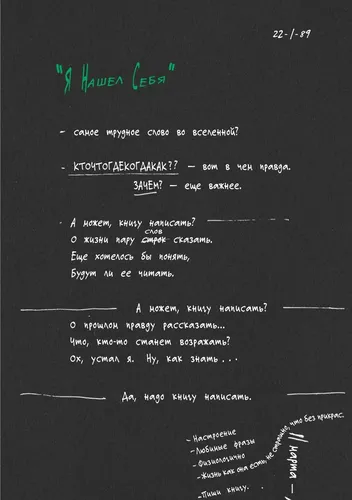 22-1-89
"Я НАШЕЛ СЕБЯ"
- самое трудное слово во вселенной?
- КТОЧТОГДЕКОГДАКАК?? - вот в чем правда.
ЗАЧЕМ? - еще важнее.
- А может, книгу написать?
слов
О жизни пару строк сказать.
Еще хотелось бы понять,
Будут ли ее читать.
А может, книгу написать?
О прошлом правду рассказать...
Что, кто-то станет возражать?
Ох, устал я. Ну, как знать...
Да, надо книгу написать.
- Настроение
- Любимые фразы
- Физиологично
- Жизнь как она есть, не страшно, что без прикрас.
- Пиши книгу.